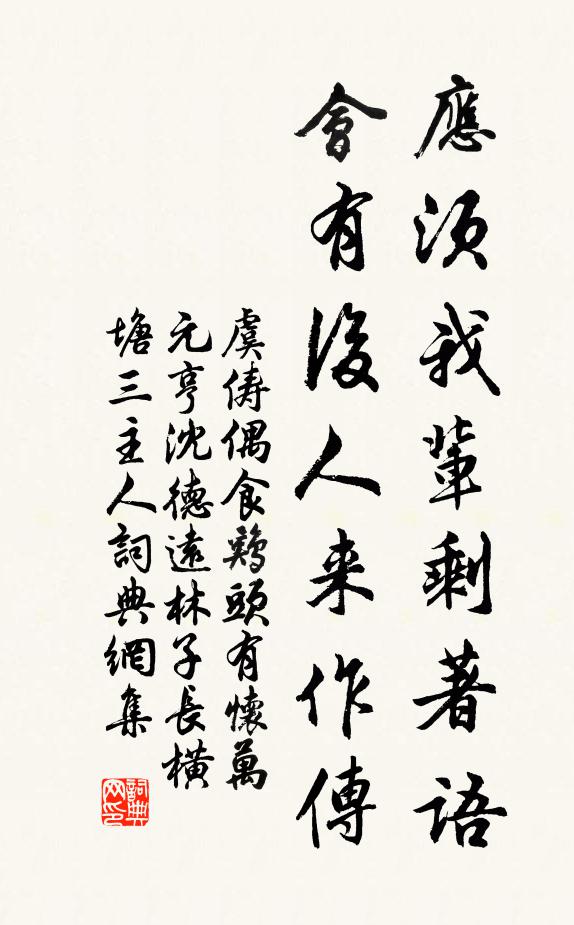 應須我輩剩著語
會有後人来作傳
虞儔偶食鶏頭有懷萬
元亨沈德遠林子長橫
塘三主人詞典網集
詞典
网印